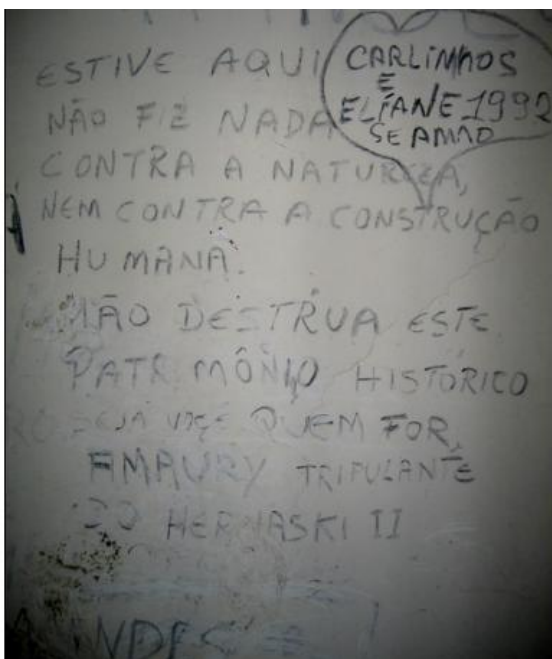 ESTIVE AQUI
NÃO FIZ NADA
CONTRA A NATUREZA,
NEM CONTRA A CONSTRUÇÃO
HUMANA.
NÃO DESTRUA ESTE
PATRIMÔNIO HISTÓRICO
SEJA VOÇE QUEM FOR,
AMAURY TRIPULANTE
DO HERNASKI II
CARLINHOS
E
ELIANE 1992
SE AMÃO